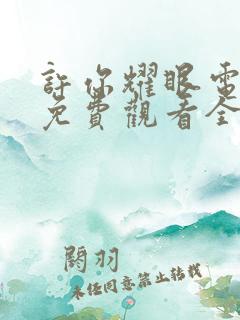 許你耀眼電
免費觀看全
閱羽
未任同意禁止轉載